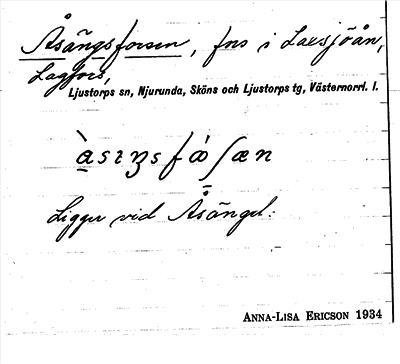 Åsängsforsen, fns i Laxsjöån,
Lagfors,
Ljustorps sn, Njurunda, Sköns och Ljustorps tg, Västernorrl. l.
Ligger vid Åsängel:
ANNA-LISA ERICSON 1934